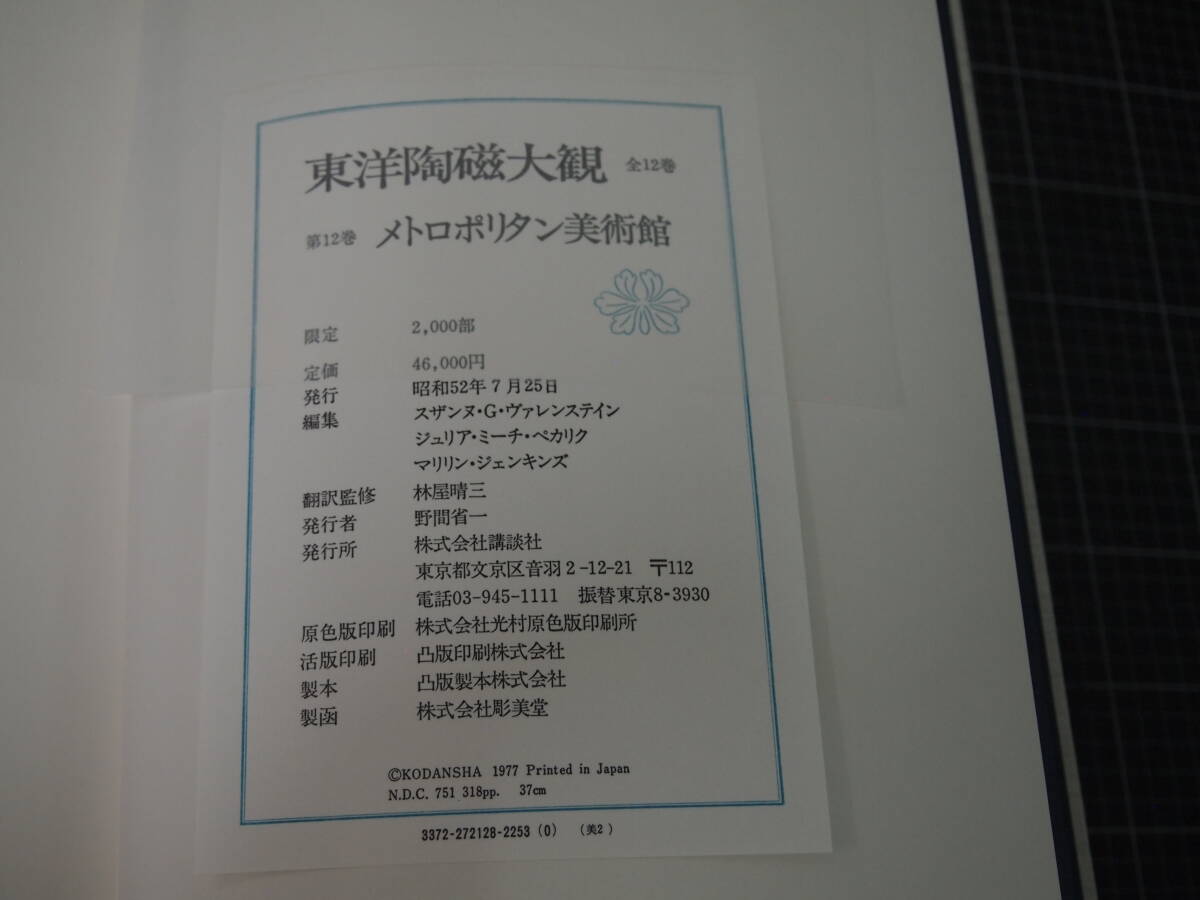 東洋陶磁大観 全12巻
第12巻 メトロポリタン美術館
限定 2,000部
定価 46,000円
発行 昭和52年7月25日
編集 スザンヌ・G・ヴァレンステイン
ジュリア・ミーチ・ペカリク
マリリン・ジェンキンズ
翻訳監修 林屋晴三
発行者 野間省一
発行所 株式会社講談社
東京都文京区音羽2-12-21 〒112
電話03-945-1111 振替東京8-3930
原色版印刷 株式会社光村原色版印刷所
活版印刷 凸版印刷株式会社
製本 凸版製本株式会社
製函 株式会社彫美堂
©KODANSHA 1977 Printed in Japan
N.D.C. 751 318pp. 37cm
3372-272128-2253 (0) (美2)